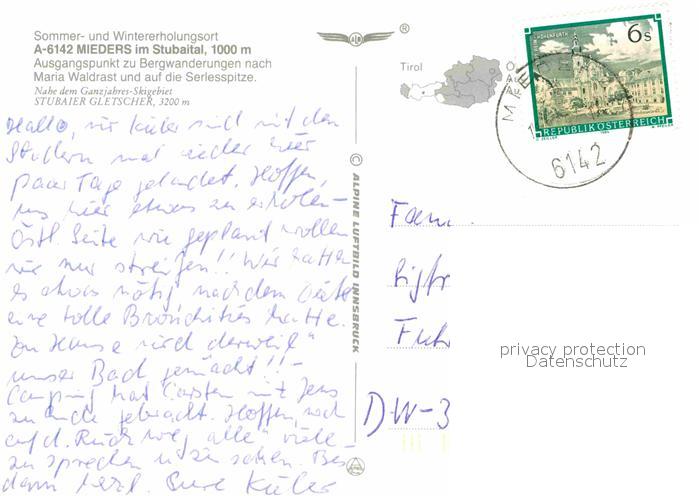 Sommer- und Wintererholungsort
A-6142 MIEDERS im Stubaital, 1000 m
Ausgangspunkt zu Bergwanderungen nach
Maria Waldrast und auf die Serlesspitze.
Nahe dem Ganzjahres-Skigebiet
STUBAIER GLETSCHER, 3200 m
Hallo, wir Küler sind mit den
mal wieder hier
paar Tage gelandet. Hoffen,
uns hier etwas zu erholen-
Östl. Seite wie geplant wollen
wir nur streifen!! Wir hatten
es etwas nötig, nachdem
eine tolle Bronchitis hatte.
Zu Hause wird derweil
unser Bad gemacht!!-
Camping hat Carsten mit Jens
zu Ende gebracht. Hoffen, noch
auf d. Rückweg alle viele-
zu sprechen u. zu sehen. Bis
dann herzl. Eure Küler
© ALPINE LUFTBILD INNSBRUCK
®
Tirol
6 S
REPUBLIK ÖSTERREICH
6142
Fam.
Fuhr
DW-3
privacy protection
Datenschutz